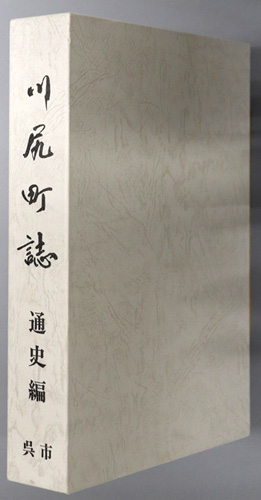 川尻町誌
通史編
呉市